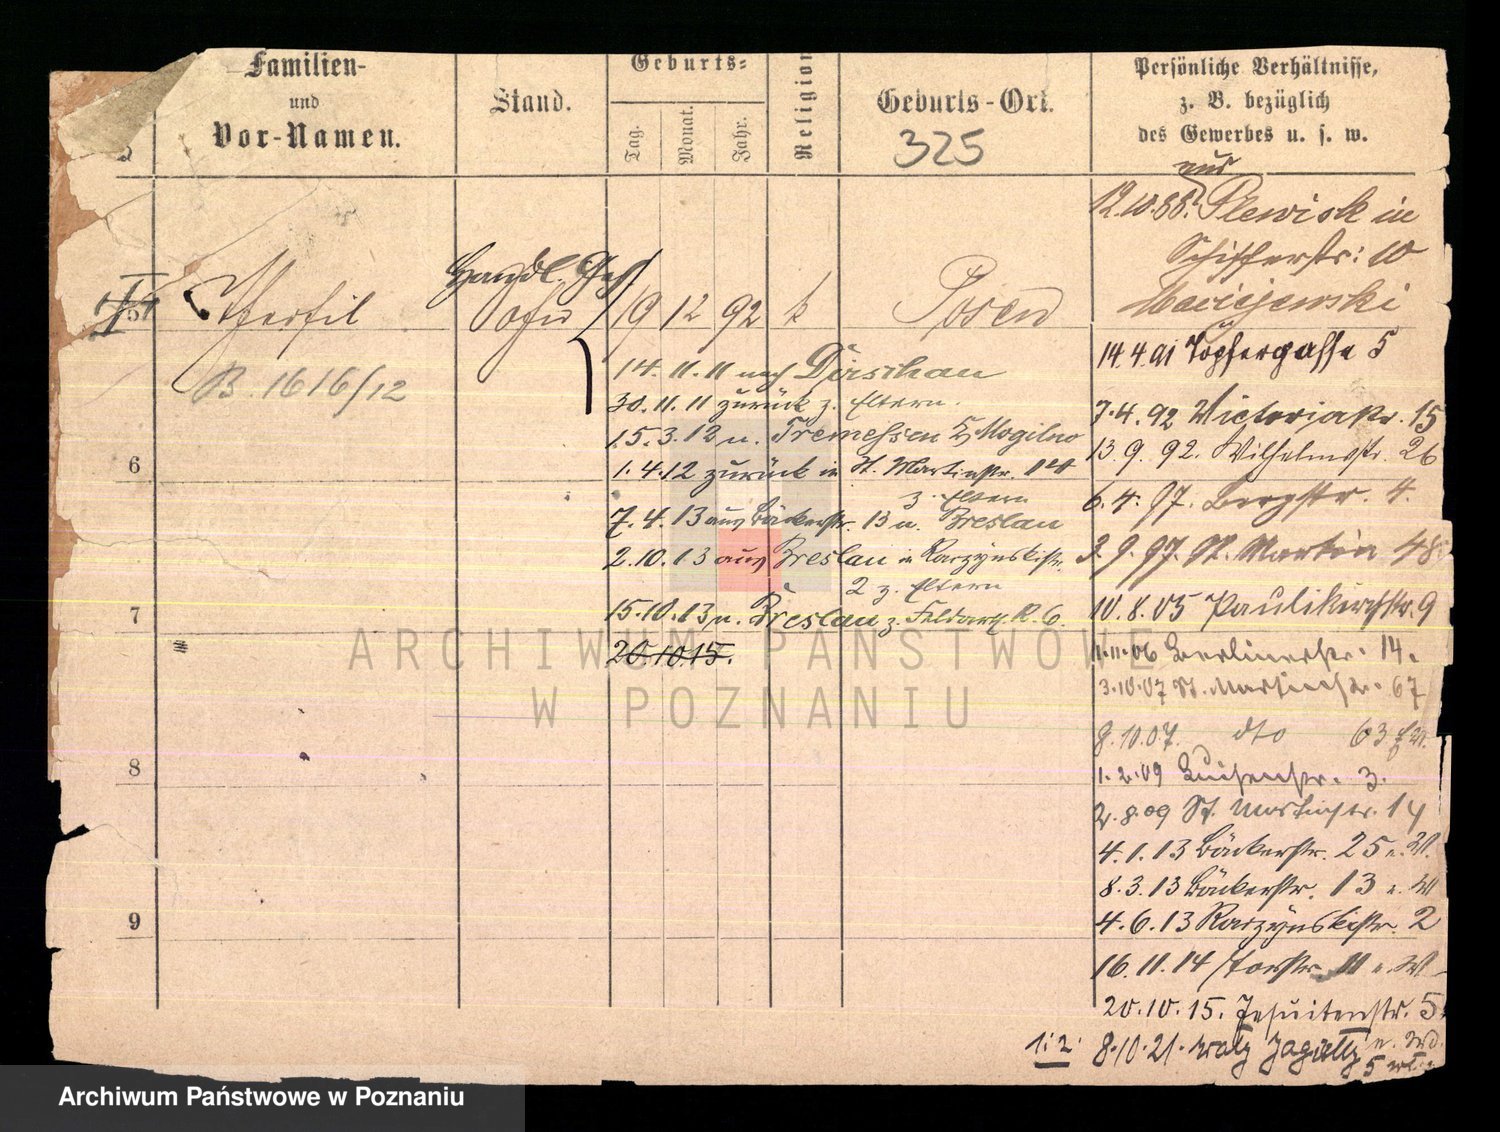 Familien-
und
Vor-Namen.
Stand.
Geburts-
Tag.
Monat.
Jahr.
Religion
Geburts-Ort.
325
Persönliche Verhältnisse,
z. B. bezüglich
des Gewerbes u. s. w.
aus
12.10.88. Plewisk in
Schifferstr: 10
Maciejewski
5
Theofil
Handl. Geh
Sohn
19 12 92 k Posen
B. 1616/12
14.11.11 nach Dirschau
30.11.11 zurück z. Eltern.
15.3.12 n. Tremessen Mogilno
1.4.12 zurück in St. Martinstr. 14
z. Eltern
7.4.13 aus Bäckerstr. 13 n. Breslau
2.10.13 aus Breslau in Raczynskistr.
2 z. Eltern
15.10.13 n. Breslau z. Feldart. R. 6.
20.10.15.
14.4.91 Töpfergasse 5
7.4.92 Victoriastr. 15
13.9.92. Wilhelmstr. 26
6.4.97. Bergstr. 4.
3.9.97. St. Martin 48
10.8.05 Paulikirchstr. 9
11.11.06 Berlinerstr. 14.
3.10.07 St. Martinstr. 67
8.10.07. dto 63
1.2.09 Luisenstr. 3.
2.8.09 St. Martinstr. 14
4.1.13 Bäckerstr. 25 n. W.
8.3.13 Bäckerstr. 13 n. W
4.6.13 Raczynskistr. 2
16.11.14 Torstr. 11 n. W
20.10.15. Jesuitenstr. 5
1:2. 8.10.21. Wały Jagiełły
5
6
7
8
9
ARCHIWUM PAŃSTWOWE
W POZNANIU
Archiwum Państwowe w Poznaniu